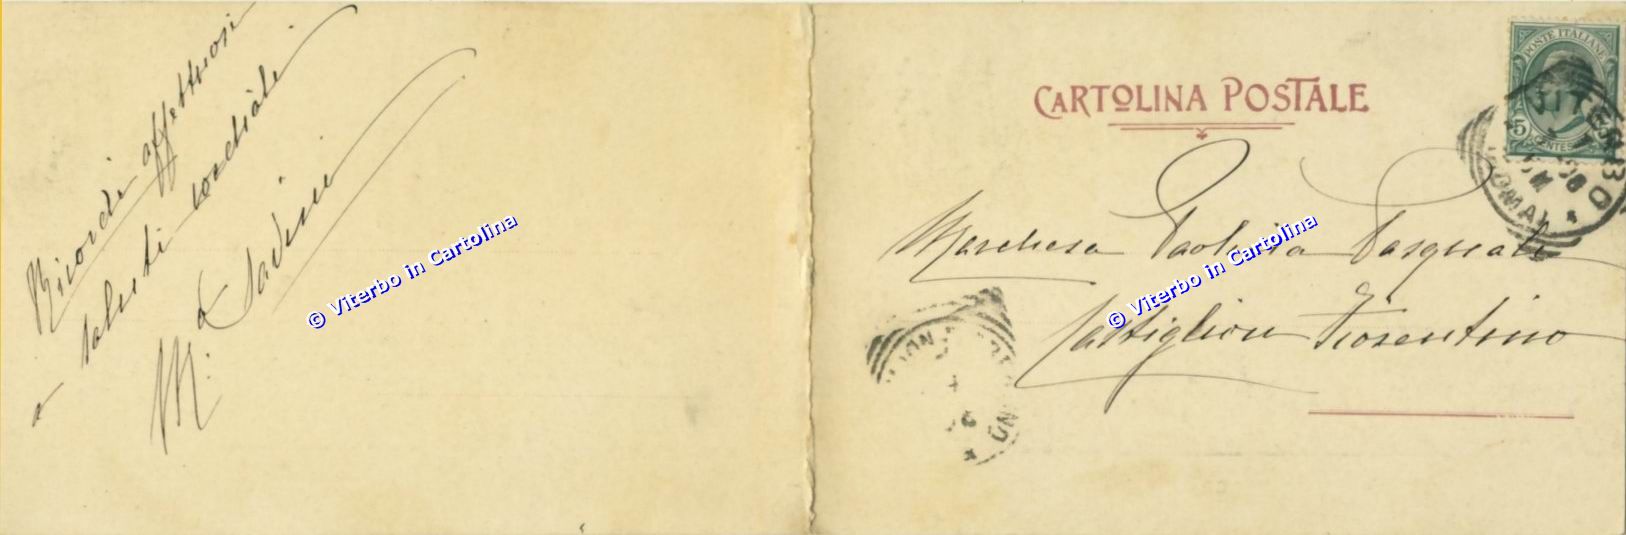 Ricordi affettuosi
e saluti cordiali
M.a Savini
© Viterbo in Cartolina
CARTOLINA POSTALE
POSTE ITALIANE
5
CENTES
VITERBO
Marchesa Paolina Pasquali
© Viterbo in Cartolina
Castiglion Fiorentino